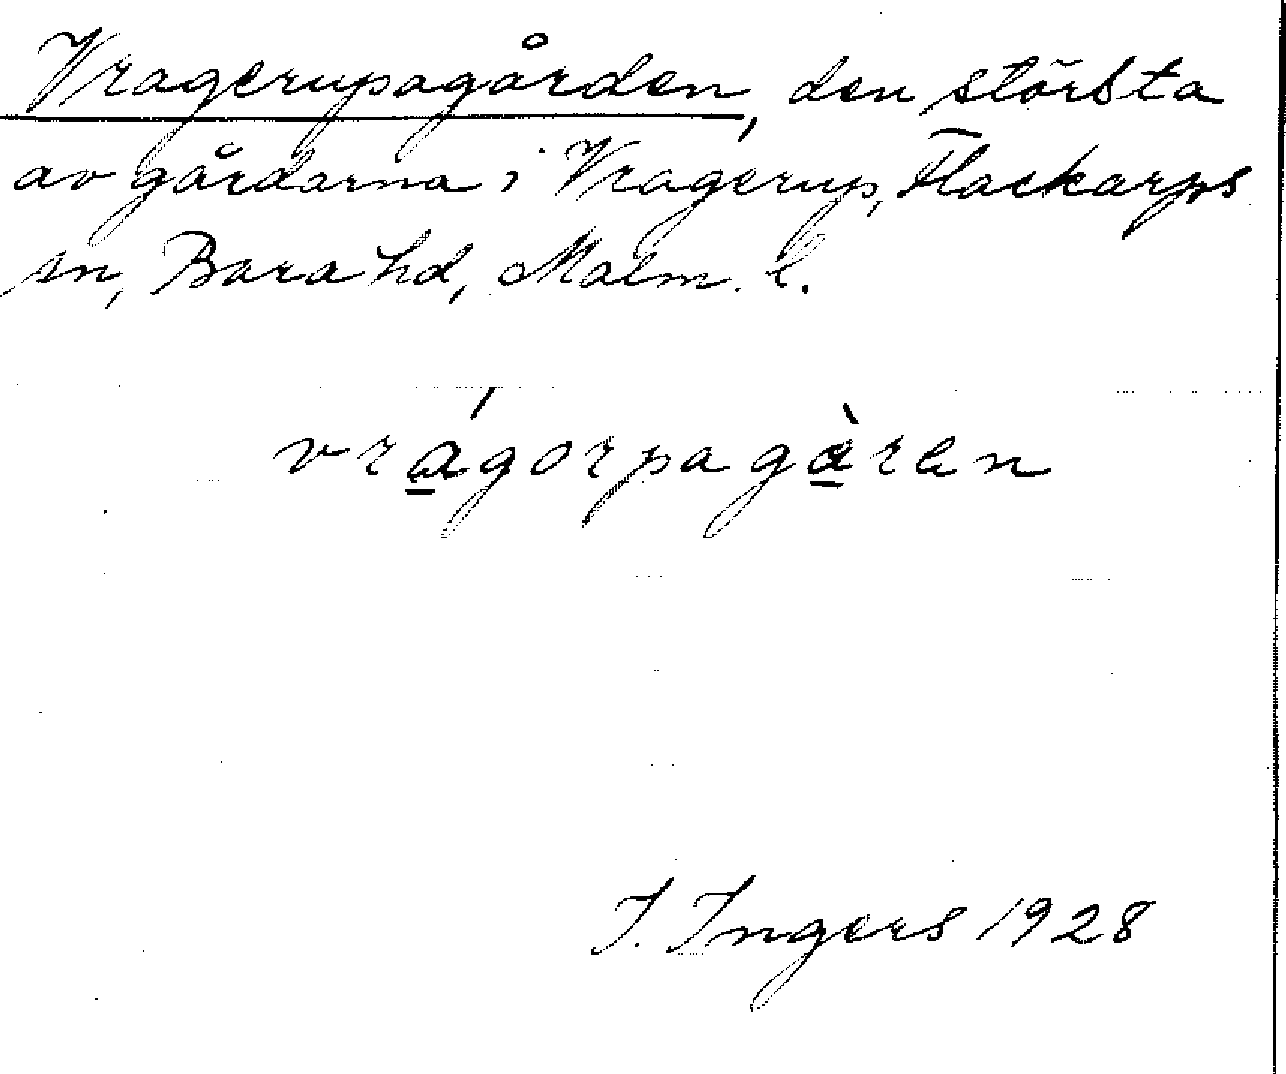 Vragerupagården, den största
av gårdarna i Vragerup, Flackarps
sn, Bara hd, Malm. l.
vrágorpagàren
I. Ingers 1928